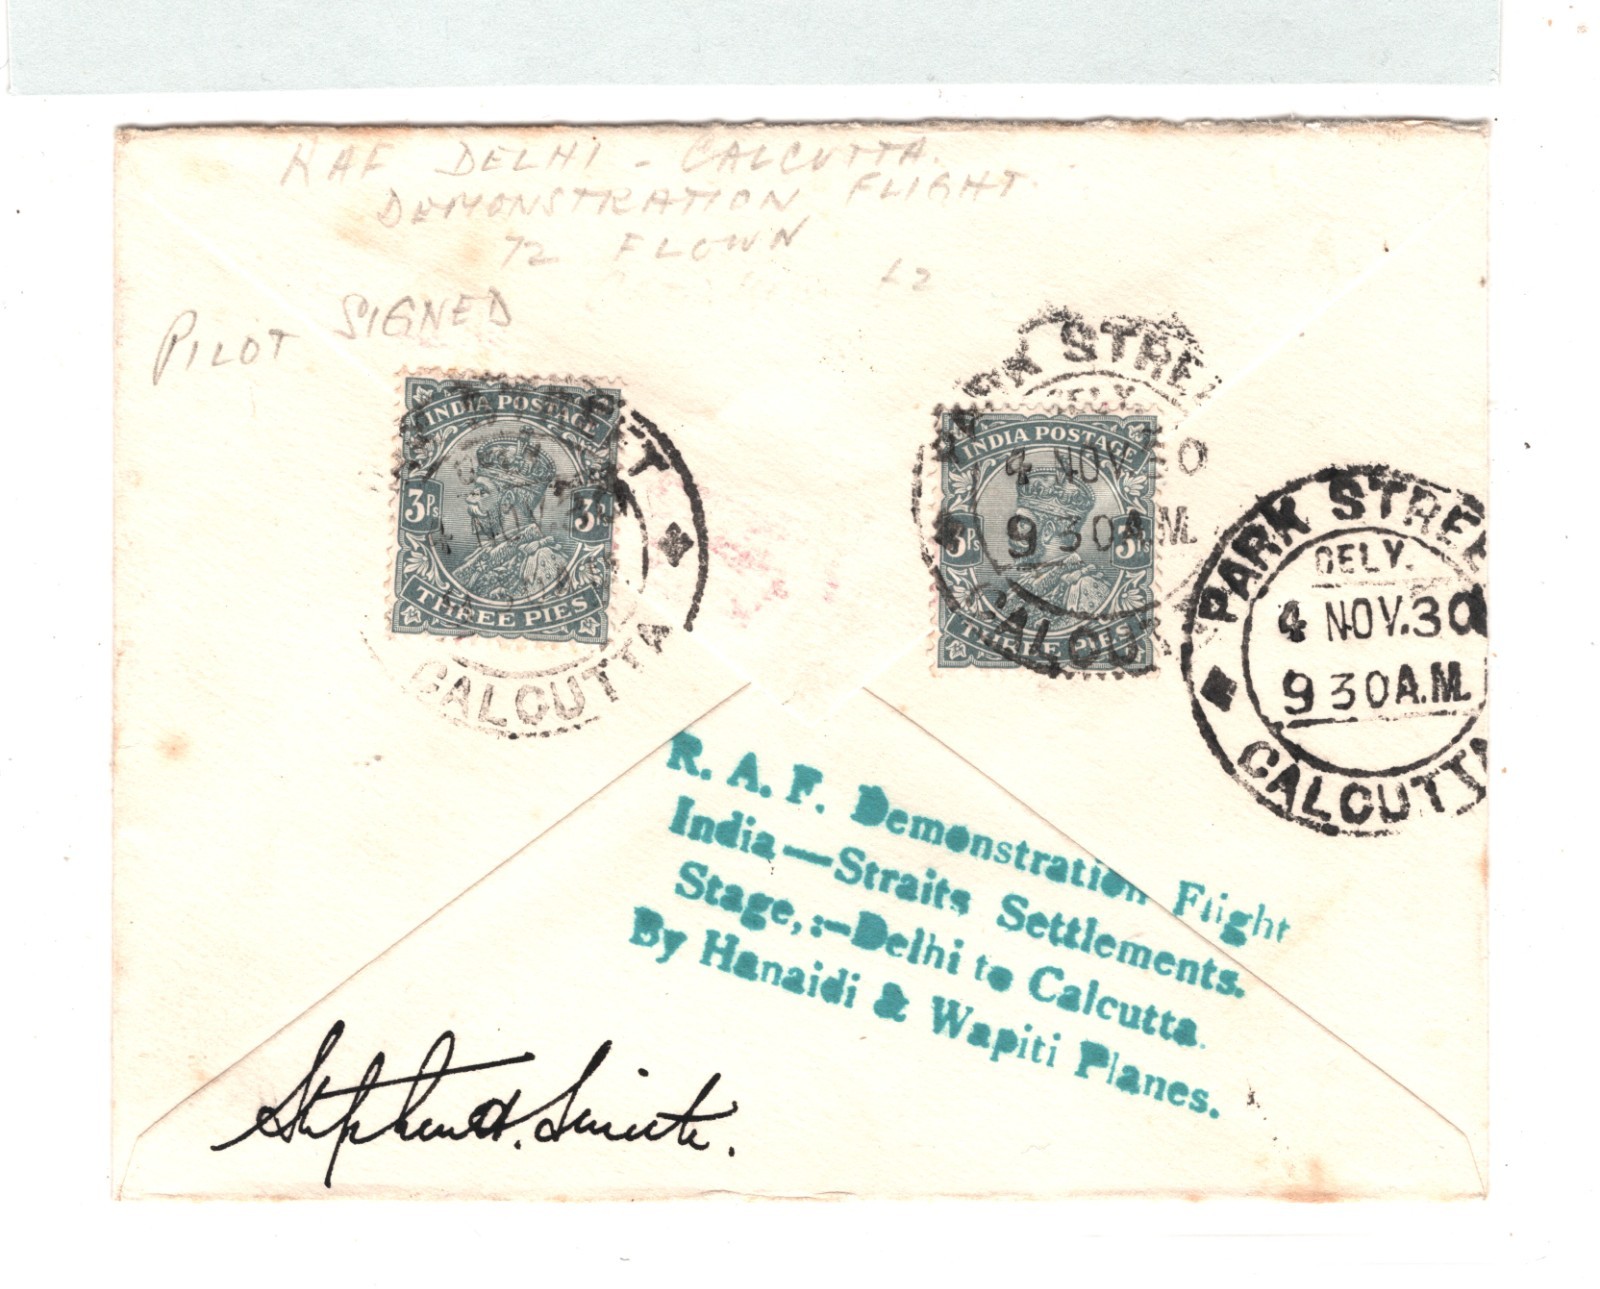 RAF DELHI - CALCUTTA.
DEMONSTRATION FLIGHT.
72 FLOWN
£2
PILOT SIGNED
INDIA POSTAGE
3Ps 3Ps
THREE PIES
CALCUTTA
PARK STREE
DELY.
INDIA POSTAGE
4 NOV. 30
9 30 A.M.
3Ps 3Ps
THREE PIES
CALCU
PARK STREE
DELY.
4 NOV. 30
9 30 A.M.
CALCUTTA
R. A. F. Demonstration Flight
India—Straits Settlements.
Stage,:—Delhi to Calcutta.
By Hanaidi & Wapiti Planes.
Stephen H. Smith.